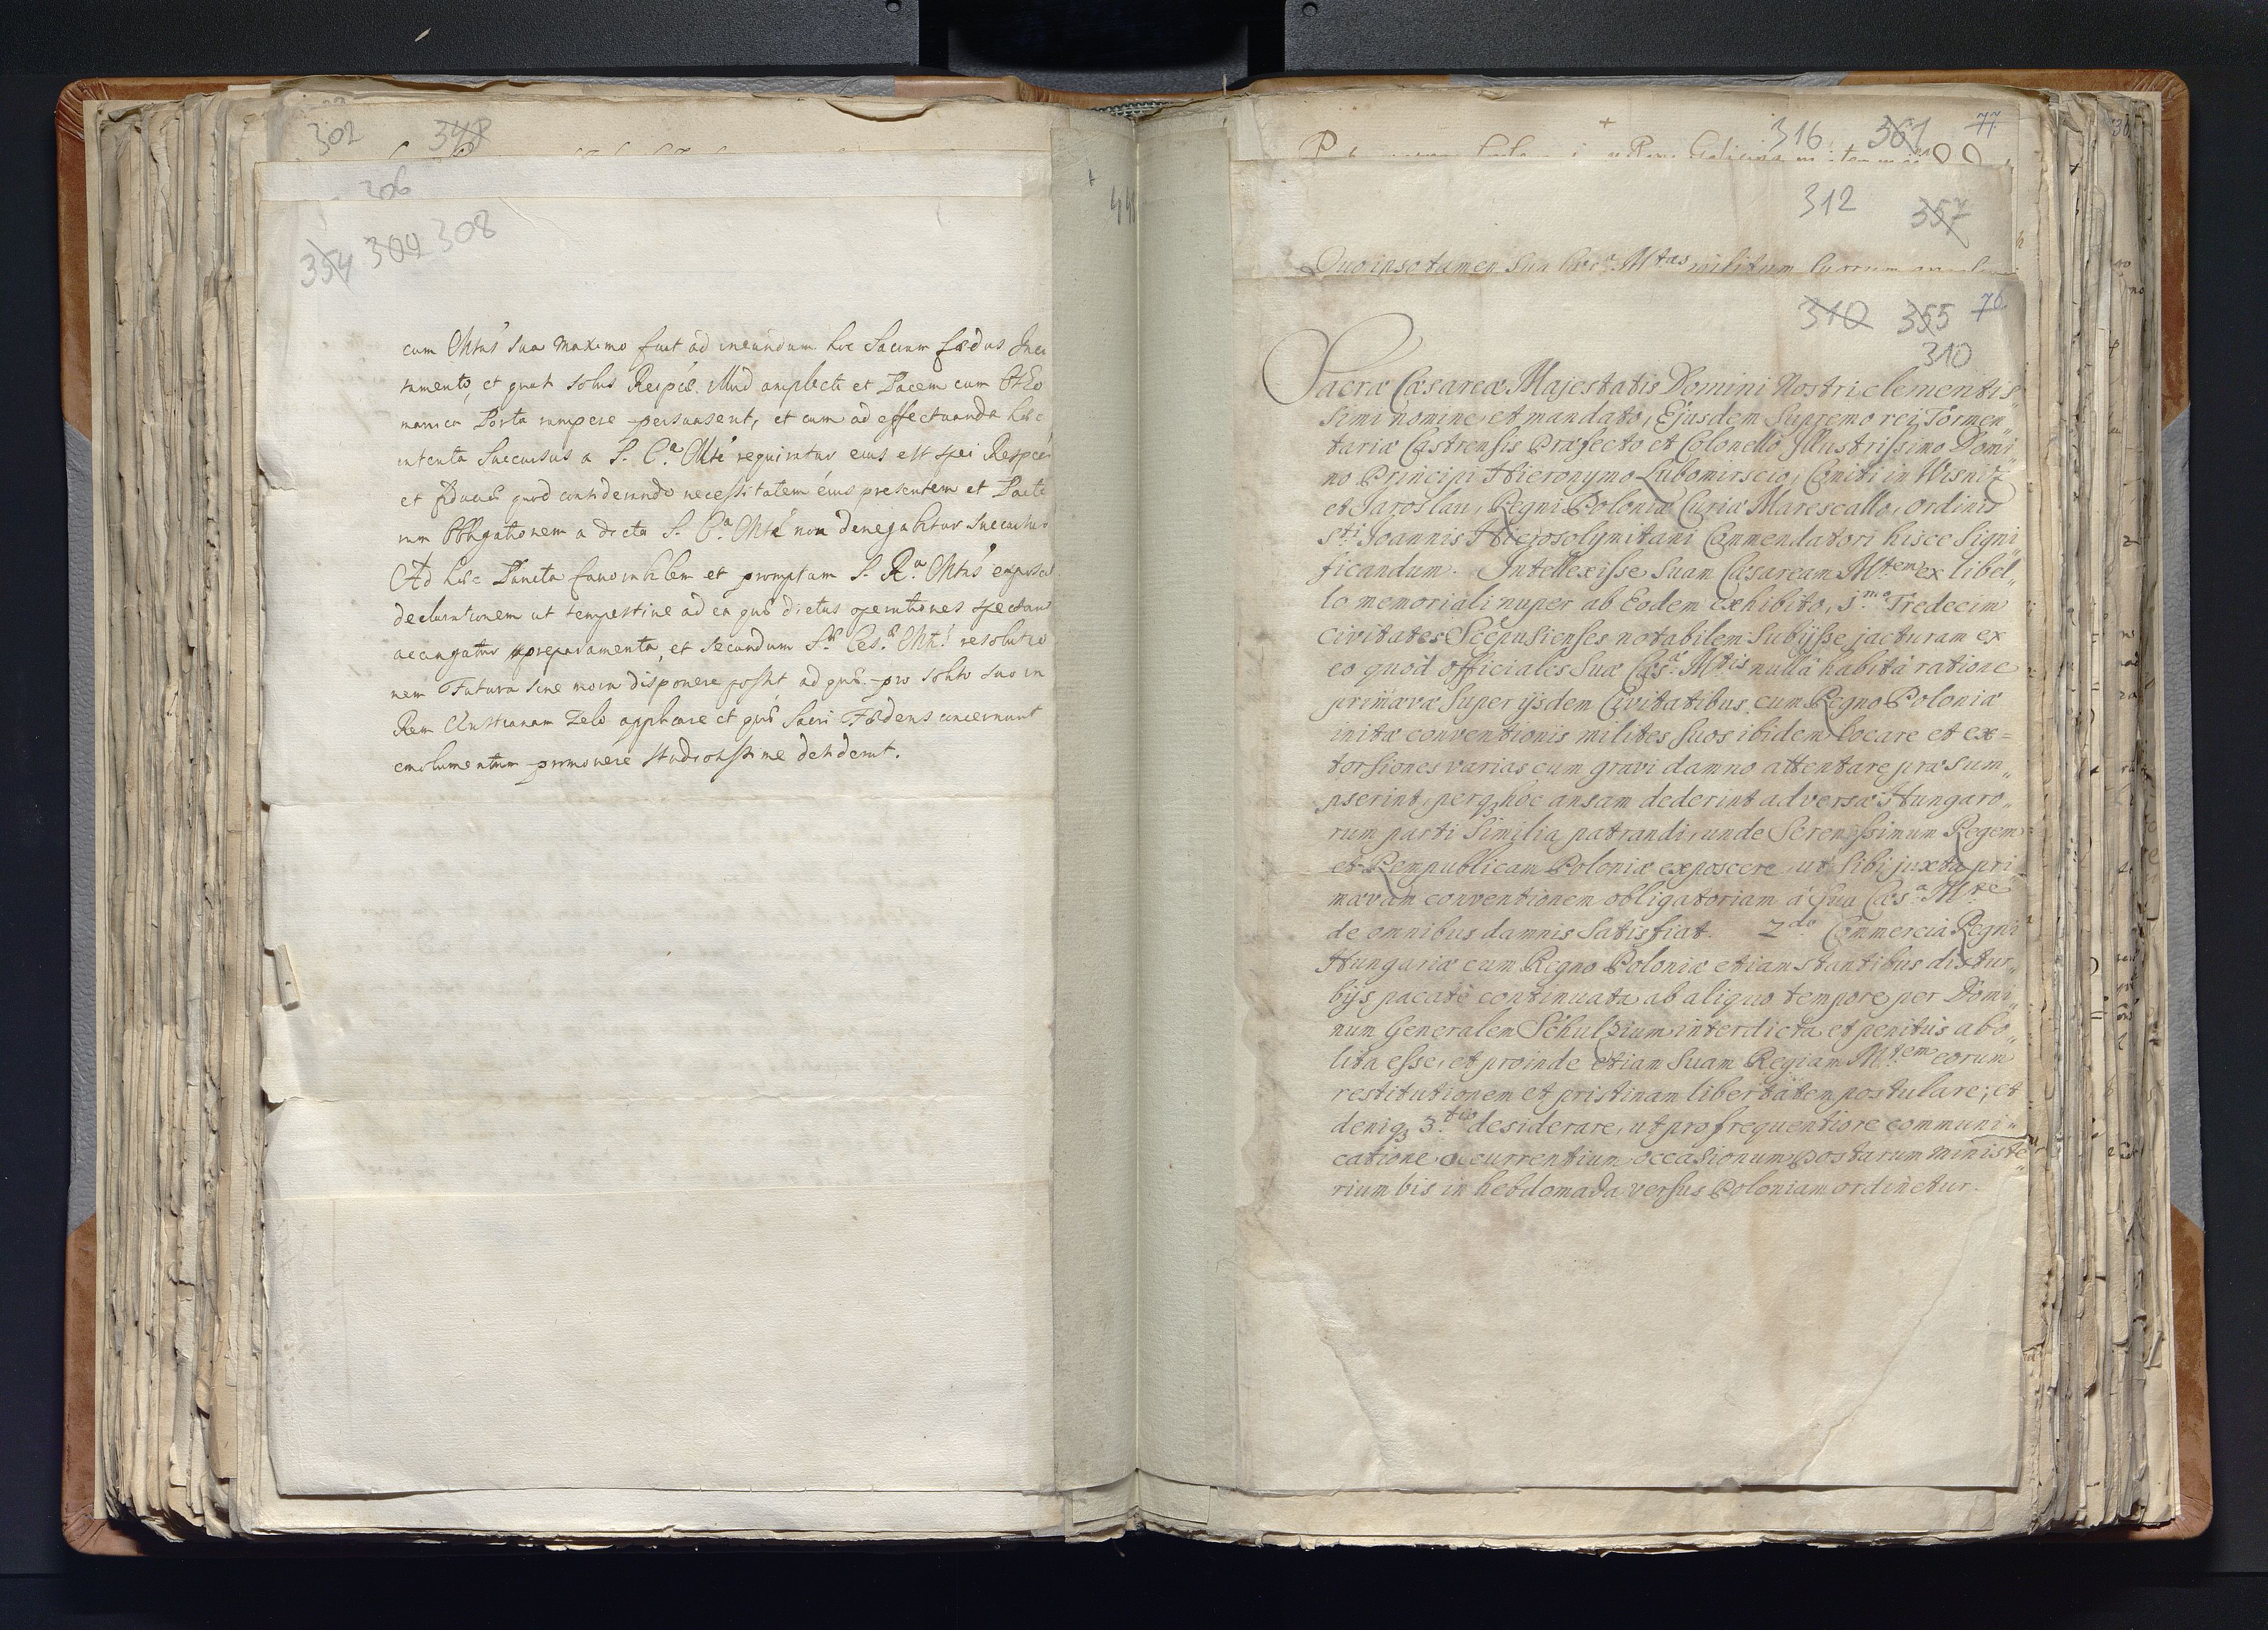 302 348
306
354 304 308
cum Mtis sua maximo fuit ad ineundum hoc Sacrum foedus Inci
tamento, et quah solus Reipcae illud amplecti et Pacem cum Otto
manica Porta rumpere persuaserit, et cum ad effectuanda haec
intenta Succursus a S. C.a Mte requiratur eius est spei Respca
et fiducae quod considerando necessitatem eius presentem et Pacto
rum Obligationem a dicta S. C.a Mte non denegabitur Succursus
Ad haec Puncta favorabilem et promptam S. R.a Mtas exposcit
declarationem ut tempestive ad ea quae dictas operationes spectant
accingatur preparamenta, et secundum S.ae Ces.ae Mtis resolutio
nem Futura sine mora disponere possit ad quae pro solito suo in
Rem Austriacam Zelo applicare et quae Sacri Foederis concernunt
emolumentum promovere studiosissime desiderat.
+
44
+ 316 361 77
312 357
Quo ipso tamen Sua Caes.a Mtas militum suorum
310 355 76
310
Sacrae Caesareae Majestatis Domini Nostri clementis„
simi nomine, et mandato, Ejusdem Supremo rei Tormen„
tariae Castrensis Praefecto et Colonello Illustrissimo Domi„
no Principi Hieronymo Lubomirscio, Comiti in Wisnitz
et Jaroslau, Regni Poloniae Curiae Marescallo, ordinis
s.ti Joannis Hierosolymitani Commendatori hisce Signi„
ficandum. Intellexisse Suam Caesaream M.tem ex libel„
lo memoriali nuper ab Eodem exhibito, j.mo Tredecim
civitates Scepusienses notabilem Subijsse jacturam ex
eo quod officiales Suae Caes.ae M.tis nullâ habitâ ratione
primaevae Super ijsdem Civitatibus cum Regno Poloniae
initae conventionis milites Suos ibidem locare et ex=
torsiones varias cum gravi damno attentare praesum„
pserint, perq hoc ansam dederint adversae Hungaro„
rum parti Similia patrandi, unde Serenissimum Regem
et Rempublicam Poloniae exposcere, ut Sibi juxta pri„
maevam conventionem obligatoriam á Sua Caes.a M.te
de omnibus damnis Satisfiat. 2.do Commercia Regni
Hungariae cum Regno Poloniae etiam stantibus distur„
bijs pacatè continuata, ab aliquo tempore per Domi„
num Generalem Schulzium interdicta et penitùs abo„
lita esse, et proinde etiam Suam Regiam M.tem eorum
restitutionem et pristinam libertatem postulare; et
deniq 3.tio desiderare, ut pro frequentiore communi„
catione occurrentium occasionum postarum ministe„
rium bis in hebdomada versus Poloniam ordinetur.